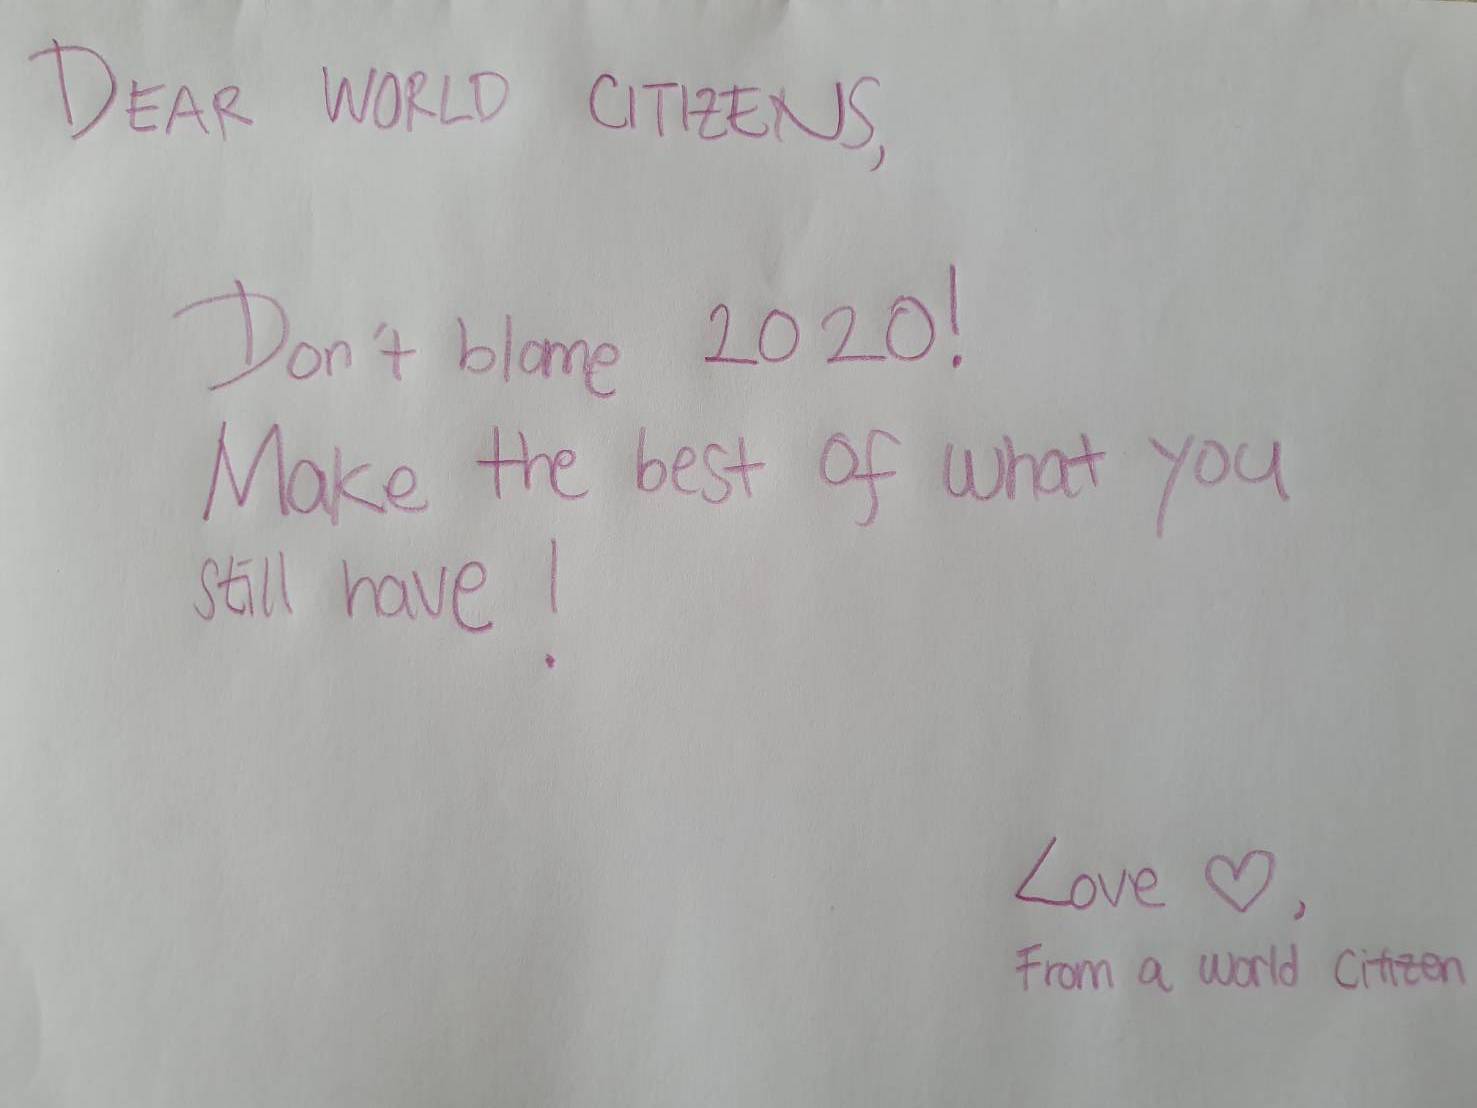 DEAR WORLD CITIZENS,
Don't blame 2020!
Make the best of what you
still have!
Love ♡,
From a world citizen